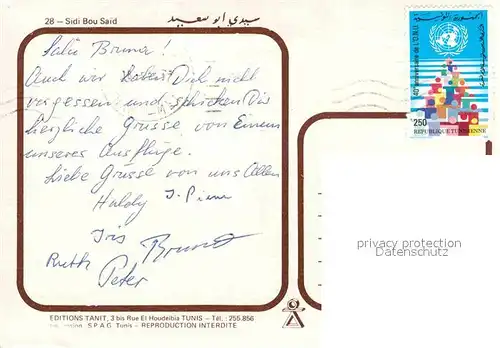 28 – Sidi Bou Saïd
سيدي ابو سعيد
Salü Bruna!
Auch wir haben Dich nicht
vergessen und schicken Dir
herzliche Grüsse von Einem
unseres Ausflüge.
Liebe Grüsse von uns Allen
Iris
Ruth
Peter
الجمهورية التونسية
40e anniversaire de l'O.N.U.
250
REPUBLIQUE TUNISIENNE
privacy protection
Datenschutz
EDITIONS TANIT, 3 bis Rue El Houdeïbia TUNIS – Tél. : 255.856
S.P.A.G. Tunis - REPRODUCTION INTERDITE